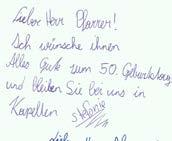 Lieber Herr Pfarrer!
Ich wünsche ihnen
Alles Gute zum 50. Geburtstag
und bleiben Sie bei uns in
Kapellen
Stefanie